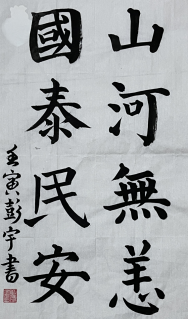 山河無恙
國泰民安
壬寅彭宇書